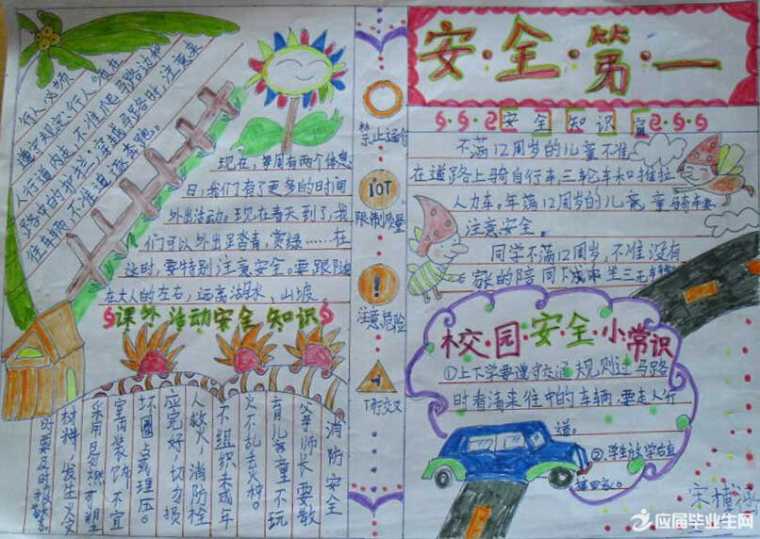 安·全·第·一
安全知识
不满12周岁的儿童不准
在道路上骑自行车,三轮车和推拉
人力车。年满12周岁的儿童
注意安全。
同学不满12周岁,不准没有
校·园·安全·小·常识
①上下学要遵守交通规则过马路
时看清来往中的车辆,要走人行
道。
②学生放学后应
行人必须
遵守规定:行人
人行道内走,不准
路中的护栏,穿越马路时,注意来
往车辆,不准追逐奔跑。
现在,每周有两个休息
日,我们有了更多的时间
外出活动。现在春天到了,我
们可以外出足踏青,赏绿……在
这时,要特别注意安全。要跟随
在大人的左右,远离湖水、山坡
课外活动安全知识
禁止通行
10T
限制质量
!
注意危险
T行交叉
消防安全
父母师长要教
育儿童不玩
火不乱丢火种。
不组织未成年
人救火,消防栓
应完好,切勿损
坏圈占埋压。
室内装饰不宜
采用易燃可塑
材料,发生火灾
应届毕业生网